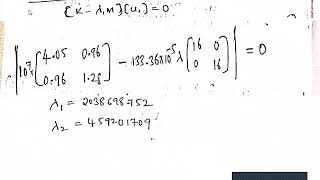 [K - λ, M] {u,} = 0
| 10^7 [4.05 0.96 0.96 1.28] - 133.36x10^-5 λ [16 0 0 16] | = 0
λ1 = 2038698752
λ2 = 459201709